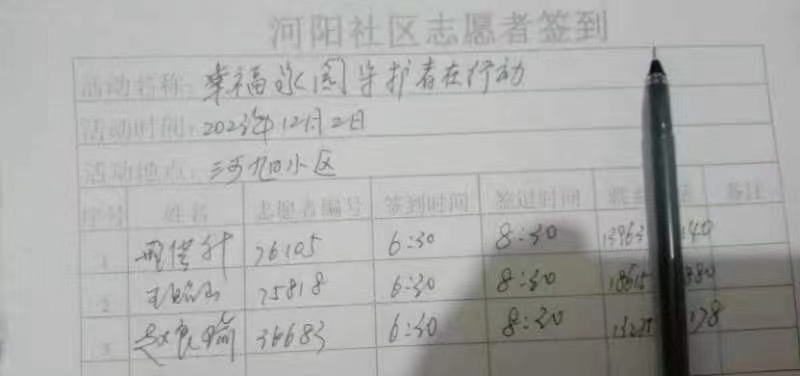 河阳社区志愿者签到
活动名称：幸福家园守护者在行动
活动时间：2023年12月2日
活动地点：河阳小区
序号 姓名 志愿者编号 签到时间 签退时间 备注
1 76105 6:30 8:30 13963 140
2 75818 6:30 8:30 18615 380
3 赵良瑜 36683 6:30 8:30 178